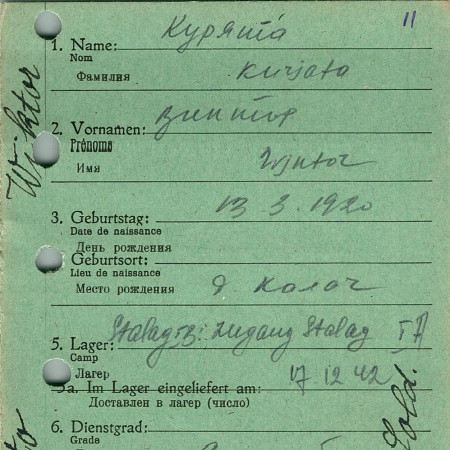 11
1. Name: Курята
Nom
Фамилия Kurjata
2. Vornamen: Виктор
Prénoms
Имя Wiktor
3. Geburtstag: 13 3. 1920
Date de naissance
День рождения
Geburtsort:
Lieu de naissance
Место рождения д Калач
5. Lager: Stalag: Zugang Stalag I A
Camp
Лагер 17 12 42
5a. Im Lager eingeliefert am:
Доставлен в лагер (число)
6. Dienstgrad:
Grade
Wiktor
Sold.